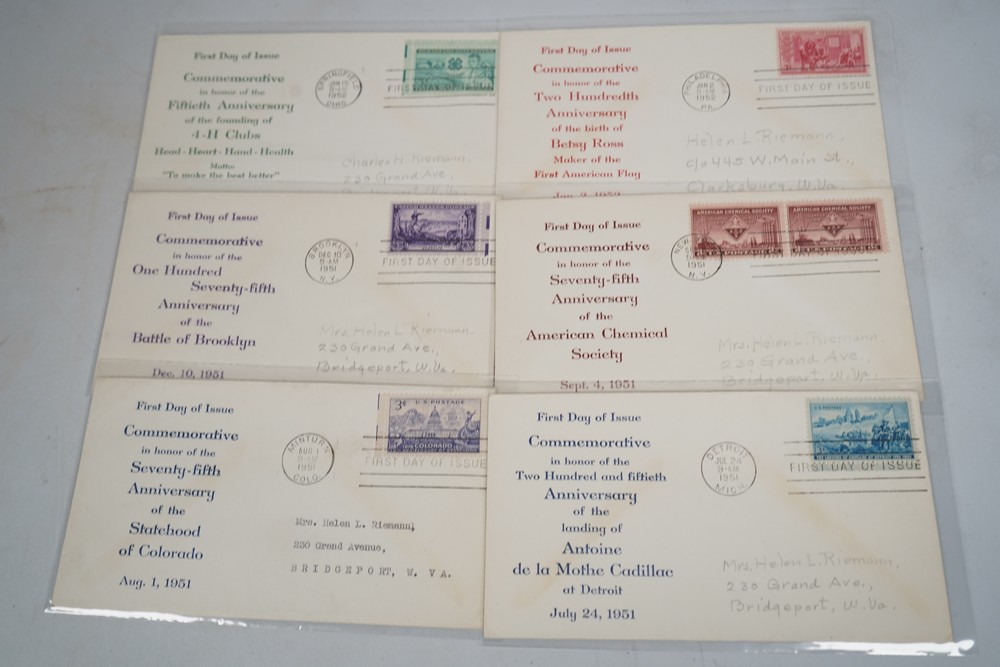 First Day of Issue
Commemorative
in honor of the
Fiftieth Anniversary
of the founding of
4-H Clubs
Head-Heart-Hand-Health
Motto
"To make the best better"
SPRINGFIELD
1952
OHIO
FIRST DAY OF ISSUE
Charles H. Riemann,
230 Grand Ave.,
First Day of Issue
Commemorative
in honor of the
Two Hundredth
Anniversary
of the birth of
Betsy Ross
Maker of the
First American Flag
PHILADELPHIA
JAN 2
1952
PA.
FIRST DAY OF ISSUE
Helen L Riemann,
c/o 445 W. Main St.,
Clarksburg, W. Va.
First Day of Issue
Commemorative
in honor of the
One Hundred
Seventy-fifth
Anniversary
of the
Battle of Brooklyn
Dec. 10, 1951
BROOKLYN
DEC 10
9-AM
1951
N.Y.
FIRST DAY OF ISSUE
Mrs. Helen L Riemann
230 Grand Ave.,
Bridgeport, W. Va.
First Day of Issue
Commemorative
in honor of the
Seventy-fifth
Anniversary
of the
American Chemical
Society
Sept. 4, 1951
NEW
1951
N.Y.
AMERICAN CHEMICAL SOCIETY
AMERICAN CHEMICAL SOCIETY
Mrs. Helen L. Riemann,
230 Grand Ave.,
Bridgeport, W. Va.
First Day of Issue
Commemorative
in honor of the
Seventy-fifth
Anniversary
of the
Statehood
of Colorado
Aug. 1, 1951
MINTURN
AUG 1
1951
COLO.
3¢ U.S. POSTAGE
COLORADO
FIRST DAY OF ISSUE
Mrs. Helen L. Riemann,
230 Grand Avenue,
BRIDGEPORT, W. VA.
First Day of Issue
Commemorative
in honor of the
Two Hundred and fiftieth
Anniversary
of the
landing of
Antoine
de la Mothe Cadillac
at Detroit
July 24, 1951
DETROIT
JUL 24
9-AM
1951
MICH.
U.S. POSTAGE
FIRST DAY OF ISSUE
Mrs. Helen L. Riemann,
230 Grand Ave.,
Bridgeport, W. Va.